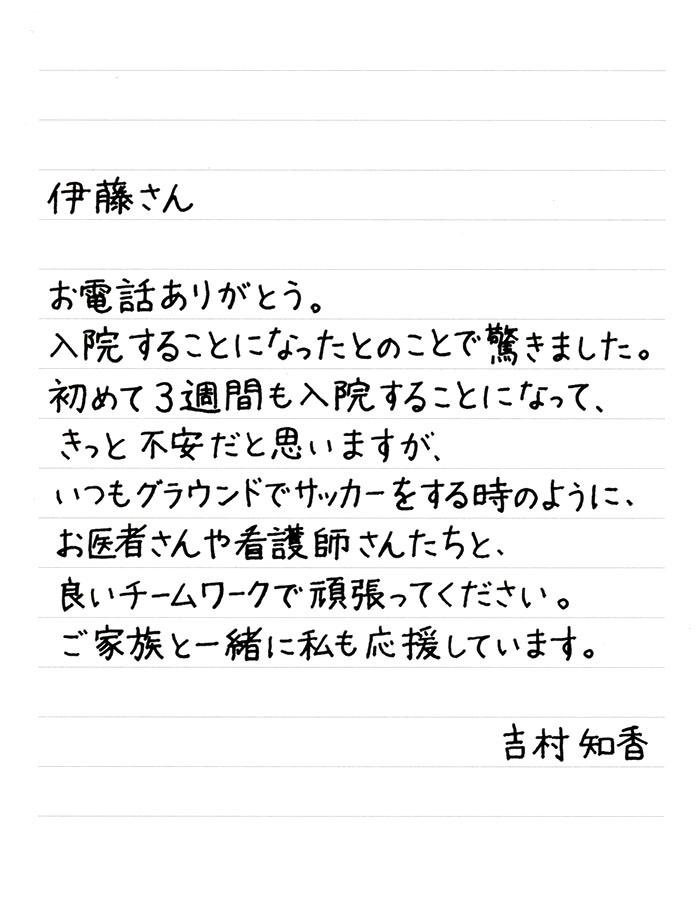 伊藤さん
お電話ありがとう。
入院することになったとのことで驚きました。
初めて3週間も入院することになって、
きっと不安だと思いますが、
いつもグラウンドでサッカーをする時のように、
お医者さんや看護師さんたちと、
良いチームワークで頑張ってください。
ご家族と一緒に私も応援しています。
吉村知香